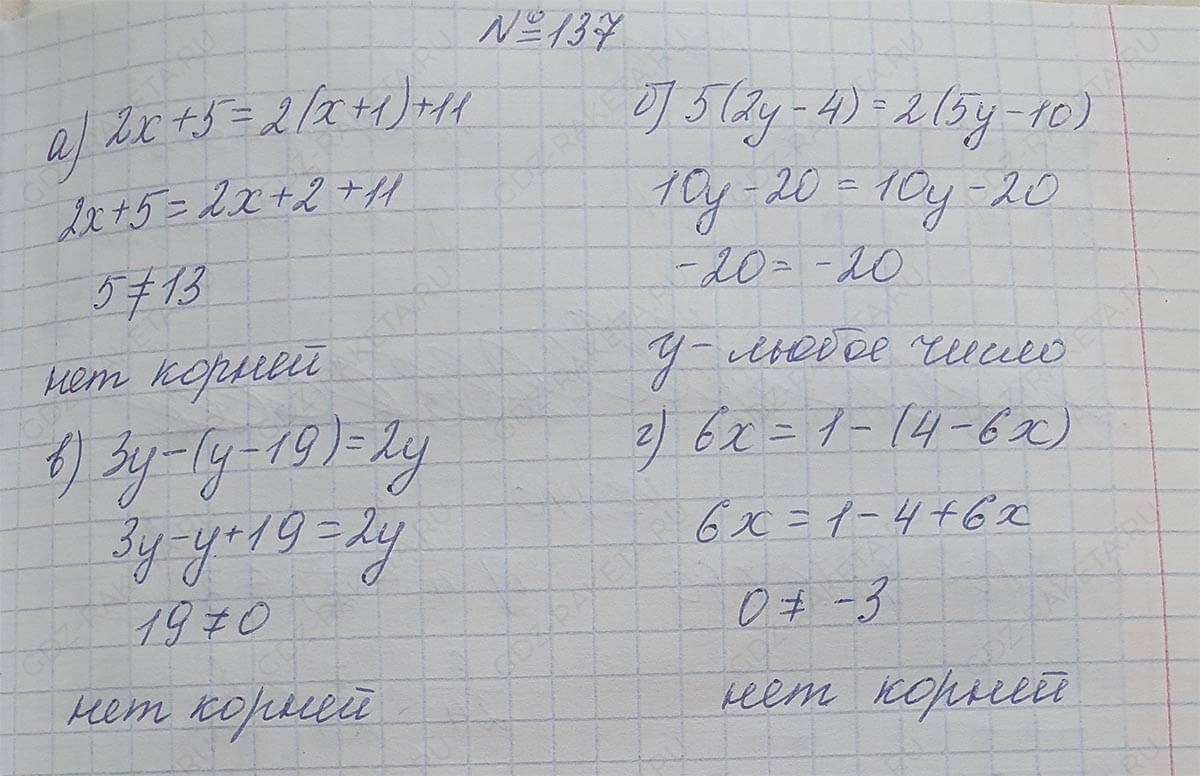 №137
а) 2x+5=2(x+1)+11
2x+5=2x+2+11
5≠13
нет корней
б) 5(2y-4)=2(5y-10)
10y-20=10y-20
-20=-20
y- любое число
в) 3y-(y-19)=2y
3y-y+19=2y
19≠0
нет корней
г) 6x=1-(4-6x)
6x=1-4+6x
0≠-3
нет корней
GDZ-RAKETA.RU